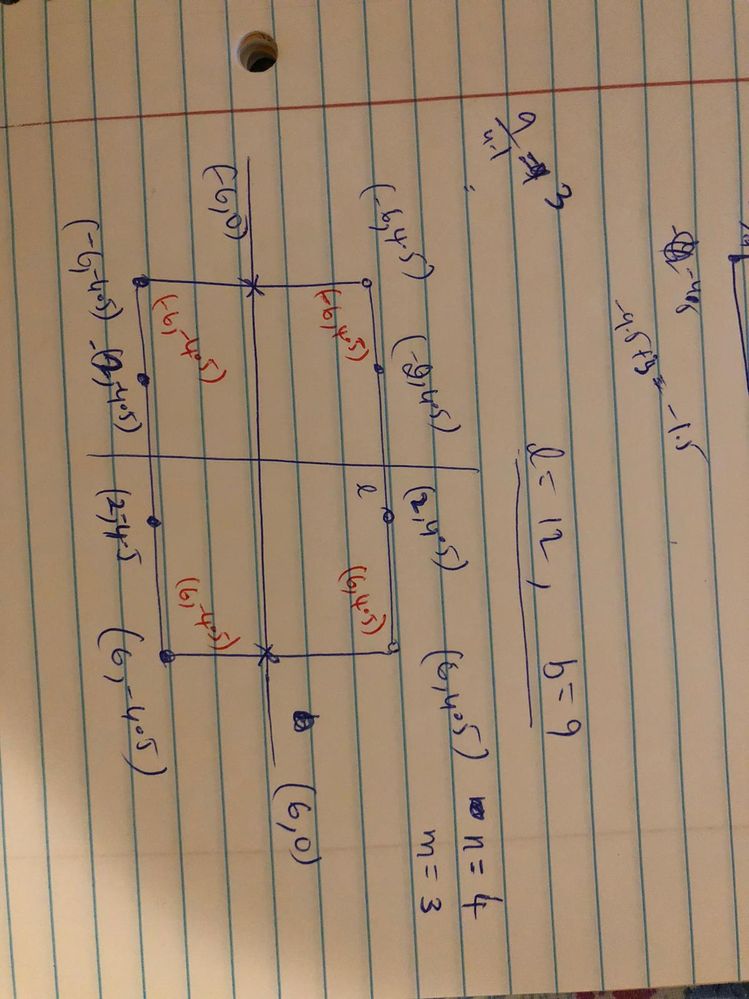 -4.5
-4.5+3 = -1.5
9/4-1 = 3
l = 12, b = 9
n = 4
m = 3
(-6, 4.5) (-2, 4.5) (2, 4.5) (6, 4.5)
l
(-6, 4.5) (6, 4.5)
(-6, 0) (6, 0)
(-6, -4.5) (6, -4.5)
(-6, -4.5) -2, -4.5) (2, -4.5 (6, -4.5)